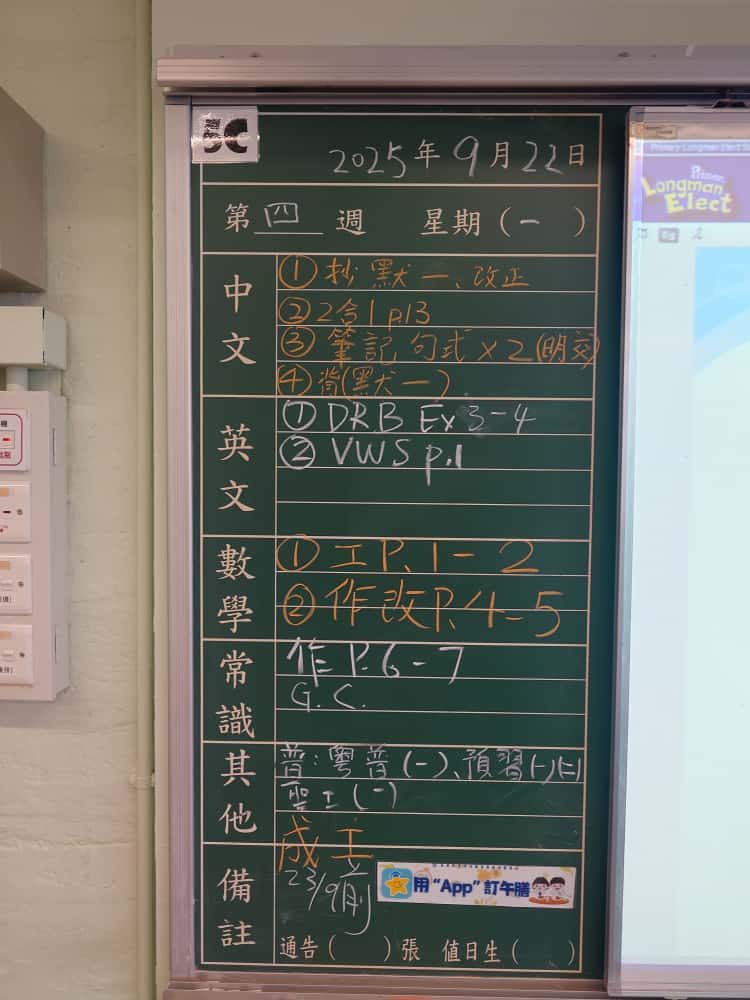 5C
2025年9月22日
第四週 星期(一)
中文
①抄默一、改正
②2合1 p.13
③筆記句式×2(明交)
④背(默一)
英文
①DRB Ex 3-4
②VWS p.1
數學
①工P.1-2
②作改P.4-5
常識
作P.6-7
G.C.
其他
普:粵普(一)、預習(一)(二)
聖工(一)
成工
備註
23/9
用"App"訂午膳
通告( )張 值日生( )
Primary Longman Elect
Primary
Longman
Elect